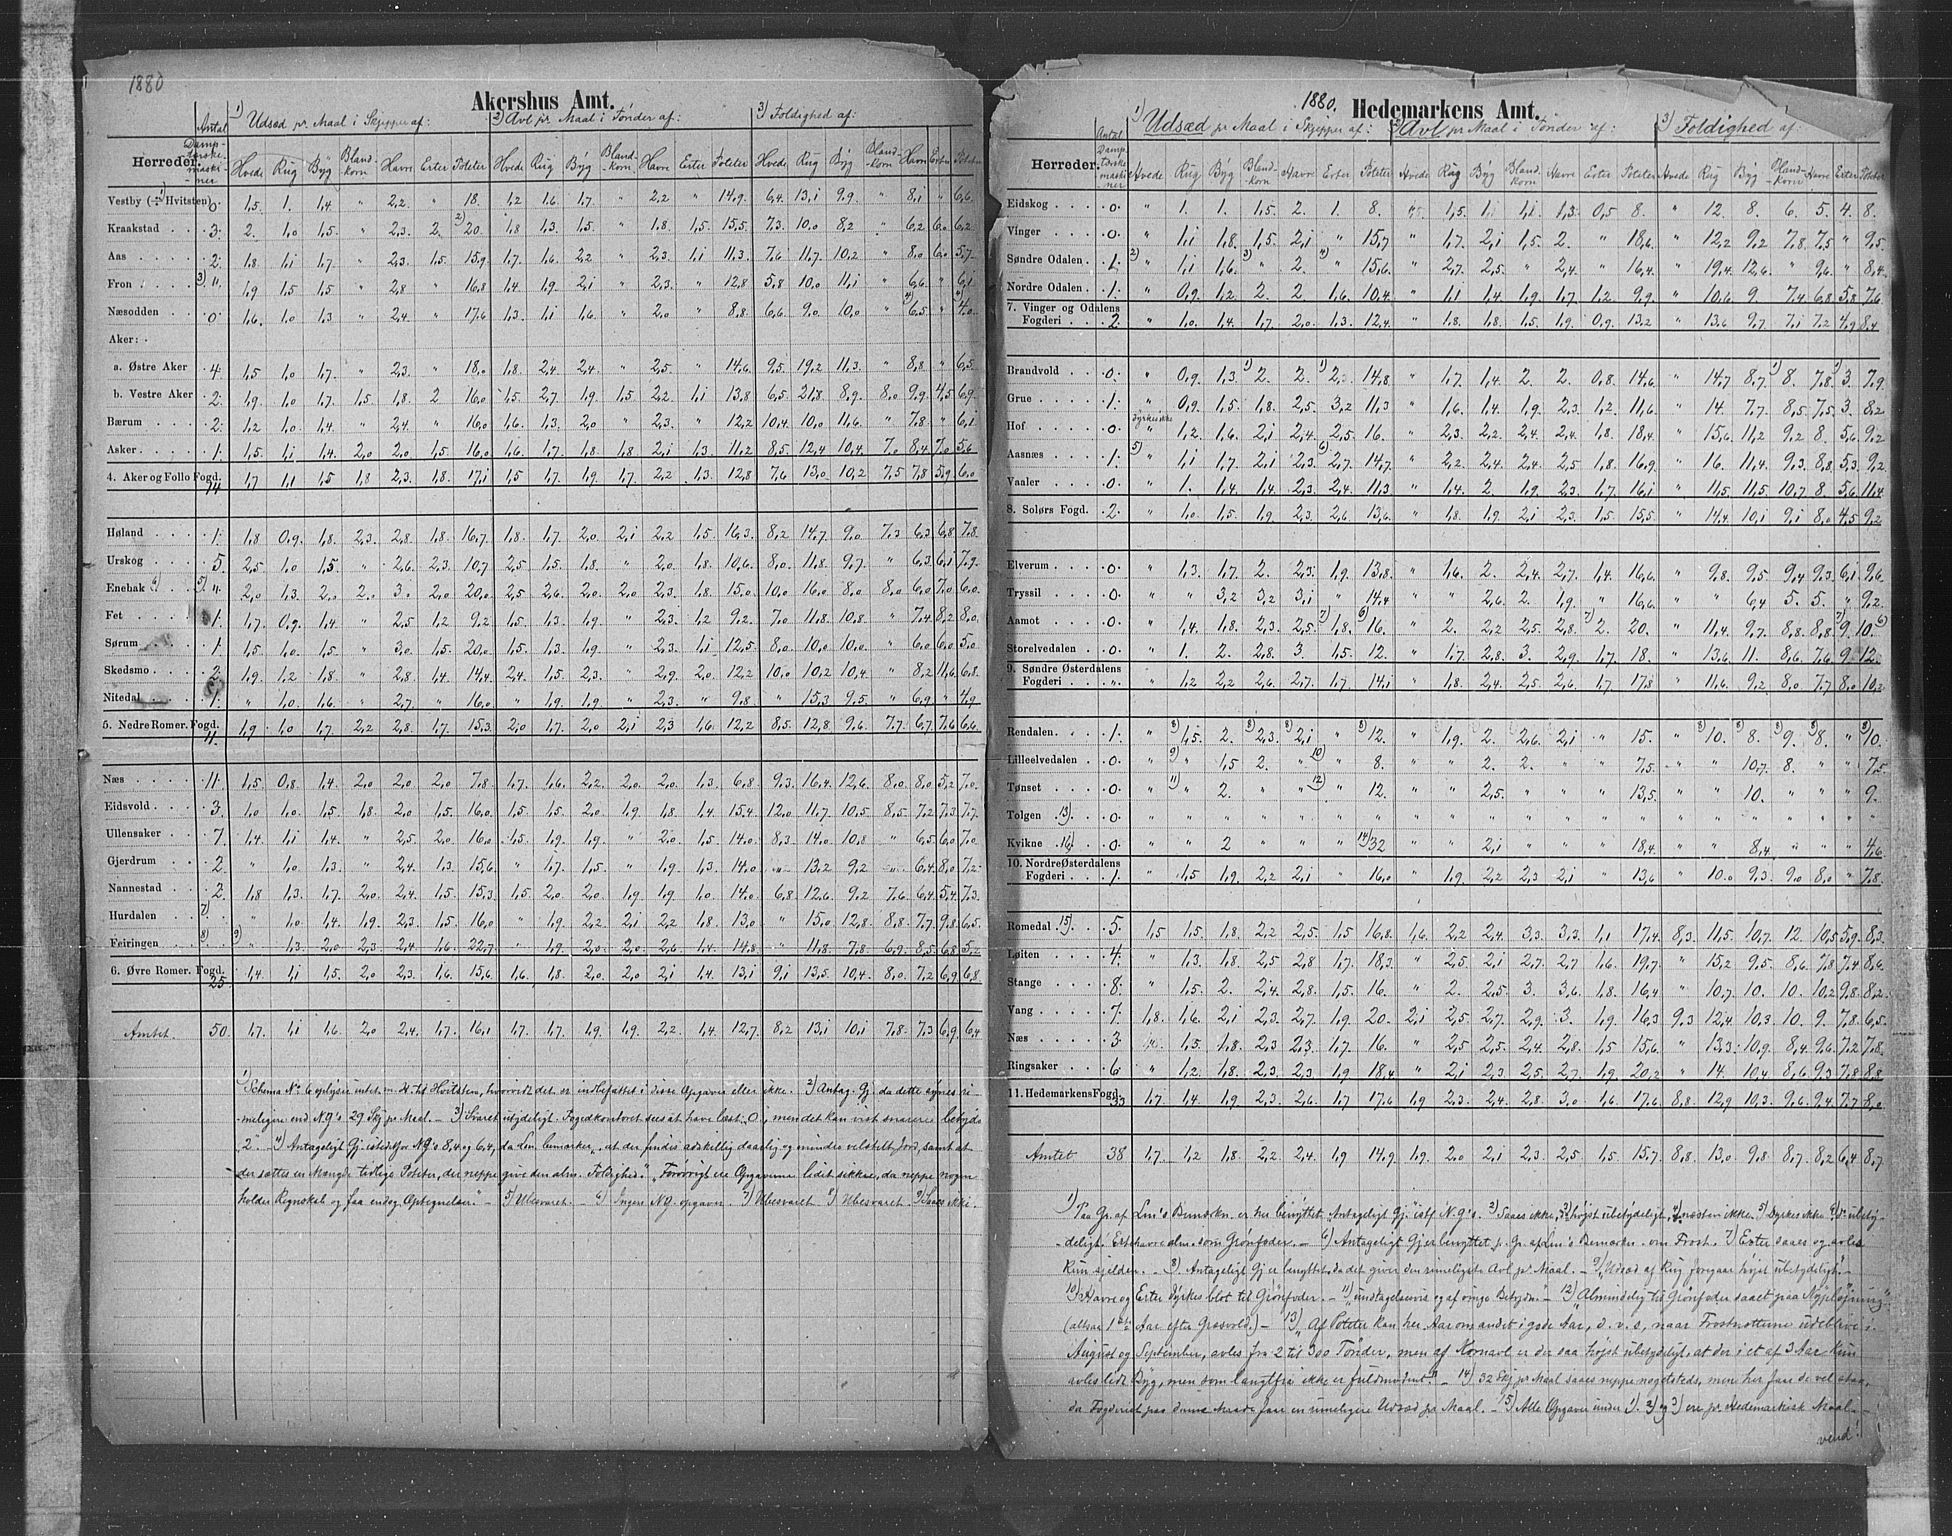 1880
Akershus Amt.
Antal Damp-tærske-maski-ner
1) Udsæd pr Maal i Skjepper af: 2) Avl pr Maal i Tønder af: 3) Foldighed af:
Herreder. Hvede Rug Byg Bland-korn Havre Erter Poteter Hvede Rug Byg Bland-korn Havre Erter Poteter Hvede Rug Byg Bland-korn Havre Erter Poteter
Vestby (÷ 1) Hvitsten) 0. 1,5. 1. 1,4. " 2,2. " 18. 1,2 1,6. 1,7. " 2,2 " 14,9. 6,4. 13,1 9,9. " 8,1 " 6,6.
Kraakstad 3. 2. 1,0 1,5. " 2,3. 2. 2) 20. 1,8 1,3. 1,5. " 1,8. 1,5. 15,5. 7,3. 10,0. 8,2 " 6,2 6,0 6,2
Aas 2. 1,8. 1,1 1,7. " 2,3. 1,5. 15,9. 1,7. 1,6. 2,2 " 2,3. 1,1 11,3. 7,6. 11,7. 10,2 " 8,0 6,0 5,7.
Fron 3) " 1,9. 1,5 1,5. " 2,8 " 16,8 1,4. 1,9. 2,1 " 2,3. " 12,8 5,8 10,0 11,1 " 6,6. " 6,1
Næsodden 0 1,6. 1,0 1,3 " 2,4. " 17,6 1,3. 1,1 1,6. " 2,0 " 8,8 6,6. 9,0 10,0 " 4) 6,5 " 4) 4,0
Aker:
a. Østre Aker 4. 1,5 1,0 1,7. " 2,3. " 18,0 1,8. 2,4 2,4. " 2,5. " 14,6. 9,5. 19,2 11,3. " 8,8. " 6,5.
b. Vestre Aker 2. 1,9. 1,0 1,7. 1,5 1,8 2 16,0 1,5. 2,7. 1,9. 1,5 2,2 1,1 13,8 6,5. 21,8 8,9. 8,0 9,9. 4,5 6,9.
Bærum 2. 1,2 1,0. 1,4. " 2,4. " 16,0 1,6. 1,3. 2,0 " 2,3. " 12,2 10,4. 10,0 11,6. " 7,8 " 6,1
Asker 1. 1,5. 1,1 1,4. 2,0 2,0 1,5 16,0 1,6. 1,7. 1,8 1,8 2,1 1,3. 11,2 8,5. 12,4 10,4. 7,0 8,4. 7,0 5,6.
4. Aker og Follo Fogd. 14 1,7 1,1 1,5. 1,8 2,3. 1,8. 17,1 1,5 1,7. 1,9. 1,7. 2,2 1,3. 12,8 7,6 13,0 10,2 7,5 7,8 5,9 6,0
Høland 1. 1,8 0,9. 1,8. 2,3. 2,8. 1,8. 16,7. 1,8. 1,7. 2,0 2,1 2,2 1,5 16,3. 8,2 14,7. 9,0. 7,3 6,3 6,8 7,8.
Urskog 5. 2,5. 1,0 1,5. " 2,6. 2,3. 10,7. 2,5. 1,5. 1,8. " 2,0. 1,8. 10,6. 8,0. 11,8. 9,7. " 6,3. 6,1 7,9.
Enebak 6) 5) " 2,0 1,3. 2,0 2,0 3,0 2,0 20,0. 2,5. 2,6. 2,0. 2,0 2,3. 1,8. 15,0. 10,0. 16,0. 8,0. 8,0 6,0 7,0 6,0.
Fet 1. 1,7. 0,9. 1,4. " 2,5. 1,2 9,2. 1,5 1,3. 1,9. " 2,3. 1,2 9,2. 7,0 11,8 10,8. " 7,4 8,2 8,0.
Sørum 1. 1,5. 1,0 1,5. " 3,0 1,5. 20,0. 1,5. 1,3. 1,9. " 2,3. 1,1 12,5. 8,0. 10,0. 10,0. " 6,0 6,0 5,0
Skedsmo 2. 1,9. 1,2 1,8. " 2,8. 1,4. 14,4. 2,4. 1,5. 2,3. " 2,9. 2,0. 12,2 10,0 10,2 10,4. " 8,2 11,6 6,8.
Nitedal 1. " 1,0 1,6. " 2,7. " 16,0. " 1,9. 1,9. " 2,3. " 9,8. " 15,3 9,5. " 6,9. " 4,9.
5. Nedre Romer. Fogd. 11. 1,9. 1,0 1,7. 2,2 2,8. 1,7. 15,3. 2,0 1,7. 2,0 2,1 2,3 1,6. 12,2 8,5. 12,8 9,6 7,7. 6,7. 7,6 6,6
Næs 11. 1,5 0,8. 1,4. 2,0 2,0 2,0 7,8. 1,7. 1,6. 2,2 2,0. 2,0. 1,3 6,8. 9,3 16,4. 12,6 8,0 8,0 5,2 7,0.
Eidsvold 3. 1,0 1,0. 1,5. 1,8 2,0 1,5. 16,0. 1,5 1,5 2,0 1,9. 1,8. 1,4 15,4. 12,0 11,7. 10,5 8,5 7,2 7,3 7,7.
Ullensaker 7. 1,4. 1,1 1,4. " 2,5 2,0 16,0 1,5. 1,9. 1,9. " 2,0. 1,5. 14,0. 8,3 14,0. 10,8 " 6,5 6,0 7,0
Gjerdrum 2. " 1,0 1,3. " 2,4. 1,3. 15,6. " 1,7. 1,5. " 1,9. 1,3 14,0. " 13,2 9,2 " 6,4 8,0 7,2
Nannestad 2. 1,8 1,3. 1,7. 2,0 2,4. 1,5 15,3 1,5 2,0 2,0 1,9. 1,9. 1,0 14,0. 6,8 12,6. 9,2 7,6 6,4 5,4 7,3.
Hurdalen 7) " 1,0 1,4. 1,9. 2,3. 1,5. 16,0. " 1,9. 2,2 2,1 2,2 1,8 13,0. " 15,0 12,8 8,8 7,7 9,8 6,5.
Feiringen 8) 9) " 1,3. 2,0 2,3. 2,4. 1,6. 22,7. " 1,9. 2,0. 2,0. 2,6. 1,4. 14,8 " 11,8. 7,8. 6,9. 8,5 6,8 5,2
6. Øvre Romer. Fogd. 25. 1,4. 1,1 1,5. 2,0 2,3. 1,6. 15,6. 1,6. 1,8. 2,0 2,0 2,1 1,4. 13,1 9,1 13,5 10,4. 8,0. 7,2 6,9 6,8
Amtet. 50. 1,7. 1,1 1,6. 2,0 2,4. 1,7. 16,1 1,7. 1,7. 1,9. 1,9. 2,2 1,4. 12,7. 8,2 13,1 10,1 7,8. 7,3 6,9 6,4
1) Schema No 6 oplyser intet m. H. til Hvitsten, hvorvidt det er indbefattet i disse Opgaver eller ikke. 2) Antag. Gj. da dette synes ri-
meligere end N.G's 29 Skj. pr. Maal. – 3) Svaret utydeligt. Fogedkontoret sees at have læst „0", men det kan vist snarere betyde
„2". – 4) Antageligt Gj istedetfor NG's 8,4 og 6,4, da den bemærker, „at der findes adskillig daarlig og mindre velskilt Jord, samt at
der sættes en Mængde tidlige Poteter, der neppe give den alm. Foldighed." „Forøvrigt ere Opgaverne lidet sikkre, da neppe nogen
holder Regnskab og faa endog Optegnelser." – 5) Ubesvaret. – 6) Ingen NG opgaver. 7) Ubesvaret 8) Ubesvaret 9) Saaes ikke.
1880. Hedemarkens Amt.
Antal Damp-tærske maski-ner
1) Udsæd pr Maal i Skjepper af: 2) Avl pr Maal i Tønder af: 3) Foldighed af:
Herreder. Hvede Rug Byg Bland-korn Havre Erter Poteter Hvede Rug Byg Bland-korn Havre Erter Poteter Hvede Rug Byg Bland-korn Havre Erter Poteter
Eidskog 0. " 1. 1. 1,5. 2. 1. 8. 1,5. 1,1 1,1 1,3. 0,5 8. " 12. 8. 6. 5. 4. 8.
Vinger 0. " 1,1 1,8. 1,5. 2,1 " 15,7 " 1,7. 2,1 1,5 2. " 18,6. " 12,2 9,2 7,8 7,5 " 9,5.
Søndre Odalen 1. 2) " 1,1 1,6. 3) " 2. 4) " 15,6. " 2,7. 2,5. " 2,4. " 16,4. " 19,4. 12,6. " 9,6. " 8,4.
Nordre Odalen 1. " 0,9. 1,2. 2. 2. 1,6. 10,4. " 1,1 1,4. 1,9. 1,7. 1,2 9,9. " 10,6. 9. 7,4 6,8 5,8 7,6
7. Vinger og Odalens
Fogderi 2. " 1,0. 1,4. 1,7. 2,0. 1,3. 12,4. " 1,8. 1,8. 1,5. 1,9. 0,9. 13,2 " 13,6 9,7. 7,1 7,2 4,9 8,4
Brandvold 0. " 0,9. 1,3 1) 2. 2. 1) 2. 14,8. " 1,7. 1,4. 2. 2. 0,8. 14,6. " 14,7 8,7. 1) 8. 7,8 1) 3. 7,9.
Grue 1. " 0,9. 1,5. 1,8. 2,5. 3,2 11,3 " 1,6. 1,4. 1,9. 2,3. 1,2. 11,6. " 14. 7,7. 8,5 7,5. 3. 8,2
Hof 0. dyrkes ikke " 1,2. 1,6. 2,1 2,4. 2,5. 16. " 2,3. 2,2. 2,4. 2,4. 1,8. 18,4. " 15,6. 11,2 9,2 8. 5,6 9,2
Aasnæs 1. 5) " 1,1 1,7. 2,1 2,3. 6) 2,7. 14,7. " 2,2 2,4. 2,4. 2,5. 1,8. 16,9. " 16. 11,4. 9,3. 8,8. 5,3. 9,2
Vaaler 0. " 1. 1,4. 1,4. 2,3. 2,4. 11,3 " 1,4. 2. 1,9. 2,3. 1,7. 16,1 " 11,5 11,5 10,7 8. 5,6. 11,4
8. Solørs Fogd. 2. " 1,0 1,5. 1,9. 2,3. 2,6. 13,6. " 1,8. 1,9. 2,1 2,3. 1,5. 15,5 " 14,4. 10,1 9,1 8,0 4,5 9,2
Elverum 0. " 1,3. 1,7. 2. 2,3. 1,9. 13,8. " 1,6. 2. 2,4. 2,7. 1,4. 16,6. " 9,8. 9,5 9,4 9,3 6,1 9,6
Tryssil 0. " " 3,2 3,2 3,1 " 14,4 " " 2,6. 2. 1,9. " 16,6. " " 6,4 5. 5. " 9,2.
Aamot 0. " 1,4. 1,8. 2,3. 2,5. 7) 1,8. 6) 16. " 2. 2,2 2,5. 2,8. 7) 2. 20. " 11,4. 9,7. 8,8. 8,8 7) 9. 10. 6)
Storelvedalen 0. " 1. 2. 2,8. 3. 1,5. 12. " 1,7. 2,8. 3. 2,9. 1,7. 18. " 13,6. 11. 8,6 7,6 9. 12.
9. Søndre Østerdalens
Fogderi " " 1,2 2,2 2,6. 2,7. 1,7. 14,1 " 1,8. 2,4. 2,5. 2,6. 1,7. 17,8 " 11,6. 9,2 8,0 7,7 8,0 10,2
Rendalen 1. " 8) 1,5. 2. 8) 2,3. 8) 2,1 " 8) 12. " 1,9. 2. 2,6. 2,1 " 15. " 8) 10. 8) 8. 8) 9. 8) 8. " 8) 10.
Lilleelvedalen 0. " 9) " 1,5 2. " 10) " 8. " " 2. 2. " " 7,5. " " 10,7. 8. " " 7,5
Tønset 0. " 11) " 2. " " 12) " 12. " " 2,5. " " " 13,5. " " 10. " " " 9.
Tolgen 13) 0. " " " " " " " " " " " " " " " " " " " " "
Kvikne 16) 0. " " 2 " " " 14) 32 " " 2,1 " " " 18,4. " " 8,4. " " " 4,6
10. Nordre Østerdalens
Fogderi 1. " 1,5 1,9. 2,2 2,1 " 16,0 " 1,9. 2,2 2,3 2,1 " 13,6 " 10,0 9,3. 9,0 8,0 " 7,8.
Romedal 15) 5. 1,5 1,5. 1,8. 2,2 2,5. 1,5. 16,8. 1,6. 2,2 2,4. 3,3. 3,3. 1,1 17,4. 8,3. 11,5. 10,7. 12. 10,5 5,9 8,3
Løiten 4. " 1,3. 1,8. 2,5 2,8 1,7. 18,3. " 2,5. 2,1 2,7. 2,7 1,6. 19,7. " 15,2 9,5. 8,6 7,8 7,4 8,6.
Stange 8. " 1,5. 2. 2,4. 2,8. 1,5. 16. " 2. 2,5. 3. 3,6. 1,8. 16,4 " 10,7 10. 10. 10,2 9,8 8,2
Vang 7. 1,8. 1,6. 2,1 2,3. 2,7. 1,9. 20. 2,1 2,5 2,7. 2,9. 3. 1,9. 16,3 9,3 12,4. 10,3 10. 9. 7,8 6,5.
Næs 3 " 1,5. 1,8. 2,3 2,3. 1,7. 16. " 2,5. 2,5. 2,4. 2,8. 1,5 15,6. " 13,3 10,9. 8,4 9,6 7,2 7,8
Ringsaker 6 " 1,2. 1,8. 2,3 2,3 1,9 18,4 " 2,1 2,3 2,5. 2,7. 1,9. 20,2 " 14. 10,4 8,6 9,3 7,8 8,8
11. Hedemarkens Fogd. 33 1,7. 1,4. 1,9. 2,3 2,6. 1,7 17,6 1,9 2,3. 2,4. 2,8 3,0 1,6. 17,6. 8,8 12,9 10,3 9,6 9,4 7,7 8,0
Amtet 38 1,7. 1,2 1,8. 2,2 2,4. 1,9. 14,9. 1,9. 2,0 2,1 2,3. 2,5. 1,5. 15,7. 8,8. 13,0. 9,8. 8,7. 8,2 6,4 8,7.
1) Paa Gr. af Lm's Bemærkn. er her benyttet „Antageligt Gj." istf N.G's. 2) Saaes ikke, 3) højst ubetydeligt, 4) næsten ikke. 5) Dyrkes ikke 6) Do ubety-
deligt. Ertehavre alm. som Grønfoder. – 6) Antageligt Gj er benyttet p. Gr. af Lm's Bemærkn. om Frost. 7) Erter saaes og avles
kun sjelden. – 8) Antageligt Gj er benyttet, da det giver den rimeligste Avl pr Maal. – 9) „Udsæd af Rug foregaar højst ubetydeligt." –
10) Havre og Erter dyrkes blot til Grønfoder. – 11) „undtagelsesvis og af ringe Betydn" – 12) „Almindelig til Grønfoder saaet paa Nypløining"
(altsaa 1ste Aar efter Græsvold.) – 13) „Af Poteter kan her, Aar om andet i gode Aar, d. v. s, naar Frostnætterne udeblive i
August og September, avles fra 2 til 300 Tønder, men af Kornavl er der saa højst ubetydeligt, at der i et af 3 Aar kun
avles lidt Byg, men som langtfra ikke er fuldmodent." – 14) 32 Skj pr Maal saaes neppe nogetsteds, men her faar de vel staa,
da Fogderiet paa denne Maade faar en rimeligere Udsæd pr Maal. – 15) Alle Opgaver under 1). 2) og 3) ere pr. Hedemarkisk Maal. –
vend!